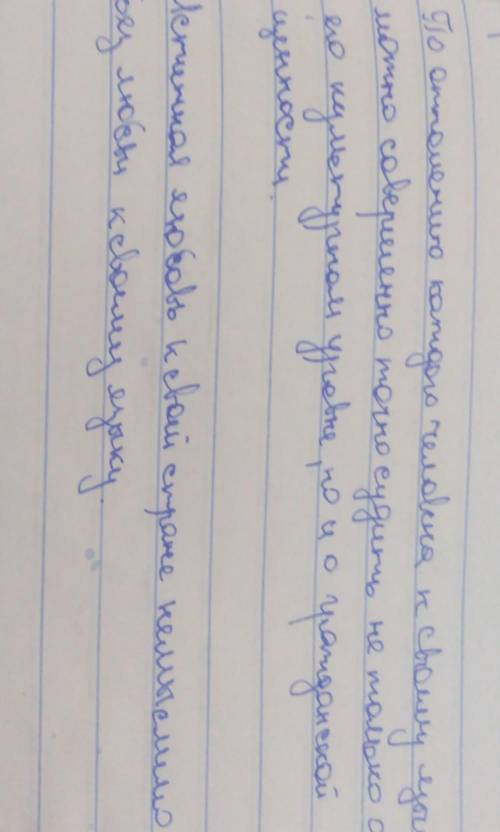 По отношению каждого человека к своему язы
можно совершенно точно судить не только о
его культурном уровне, но и о гражданской
ценности.
Истинная любовь к свой стране немыслимо
без любви к своему языку.